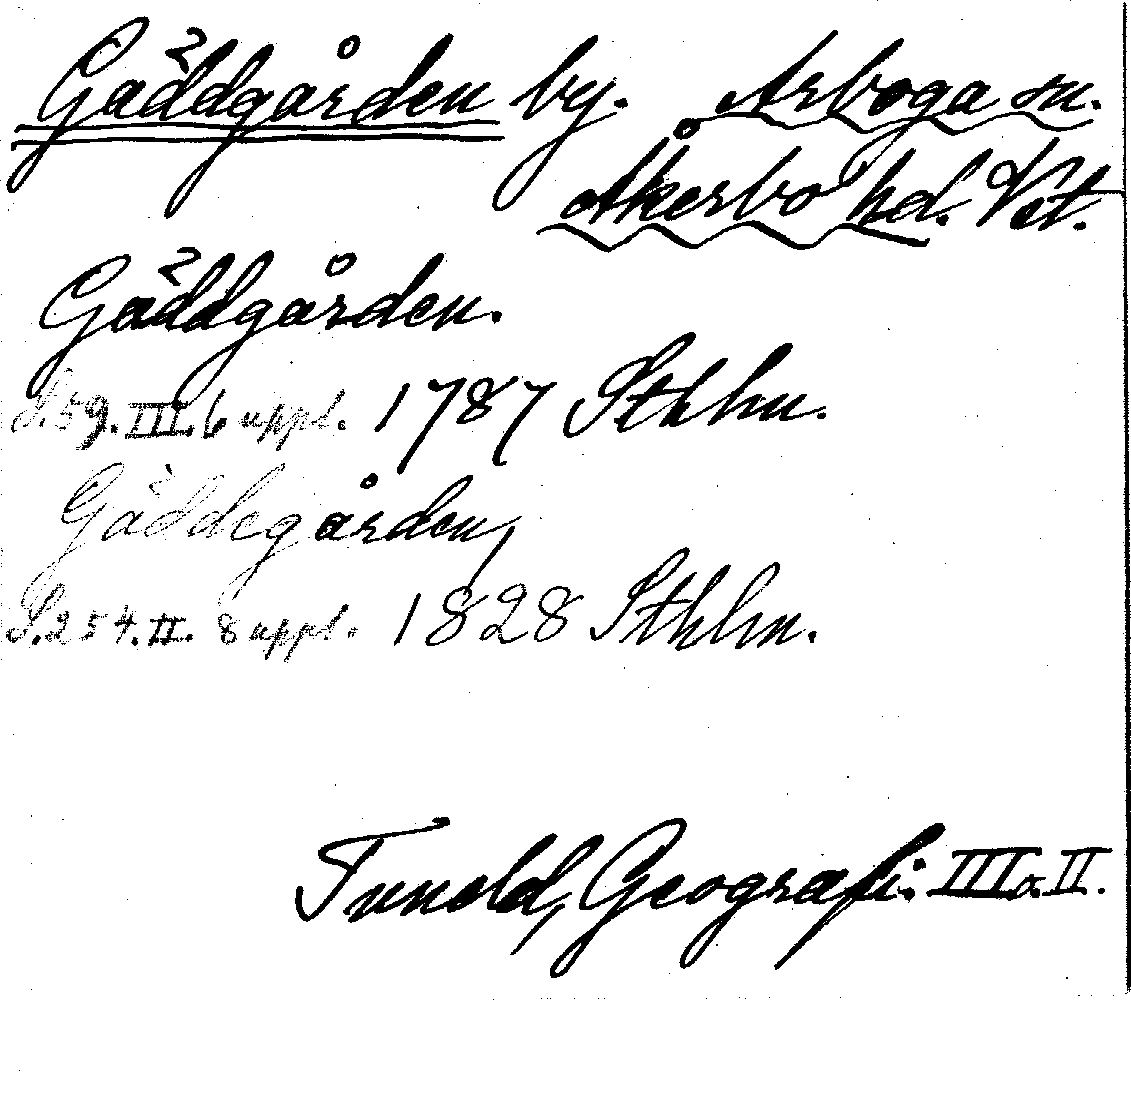 Gäddgården by. Arboga sn.
Åkerbo hd. Vst.
Gäddgården.
S.59.III.6 uppl. 1787 Sthlm.
Gäddegården,
S.254.II. 8 uppl. 1828 Sthlm.
Tuneld, Geografi. III o. II.